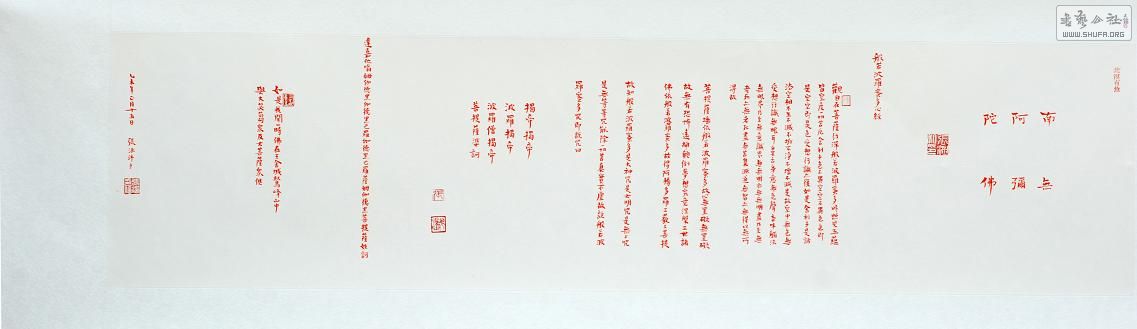 書藝公社
WWW.SHUFA.ORG
南無
阿彌
陀佛
般若波羅蜜多心經
觀自在菩薩行深般若波羅蜜多時照見五蘊
皆空度一切苦厄舍利子色不異空空不異色色即
是空空即是色受想行識亦復如是舍利子是諸
法空相不生不滅不垢不淨不增不減是故空中無色無
受想行識無眼耳鼻舌身意無色聲香味觸法
無眼界乃至無意識界無無明亦無無明盡乃至無
老死亦無老死盡無苦集滅道無智亦無得以無所
得故
菩提薩埵依般若波羅蜜多故心無罣礙無罣礙
故無有恐怖遠離顛倒夢想究竟涅槃三世諸
佛依般若波羅蜜多故得阿耨多羅三藐三菩提
故知般若波羅蜜多是大神咒是大明咒是無上咒
是無等等咒能除一切苦真實不虛故說般若波
羅蜜多咒即說咒曰
揭帝揭帝
波羅揭帝
波羅僧揭帝
菩提薩婆訶
如是我聞一時佛在王舍城鷲峰山中
與大苾芻眾及大菩薩眾俱
乙未年六月十五日 張